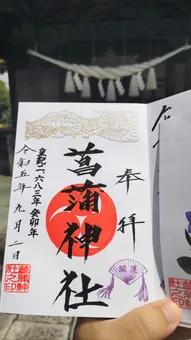 奉拝
菖蒲神社
開運
皇紀二六八三年癸卯年
令和五年九月二日
菖蒲神社之印